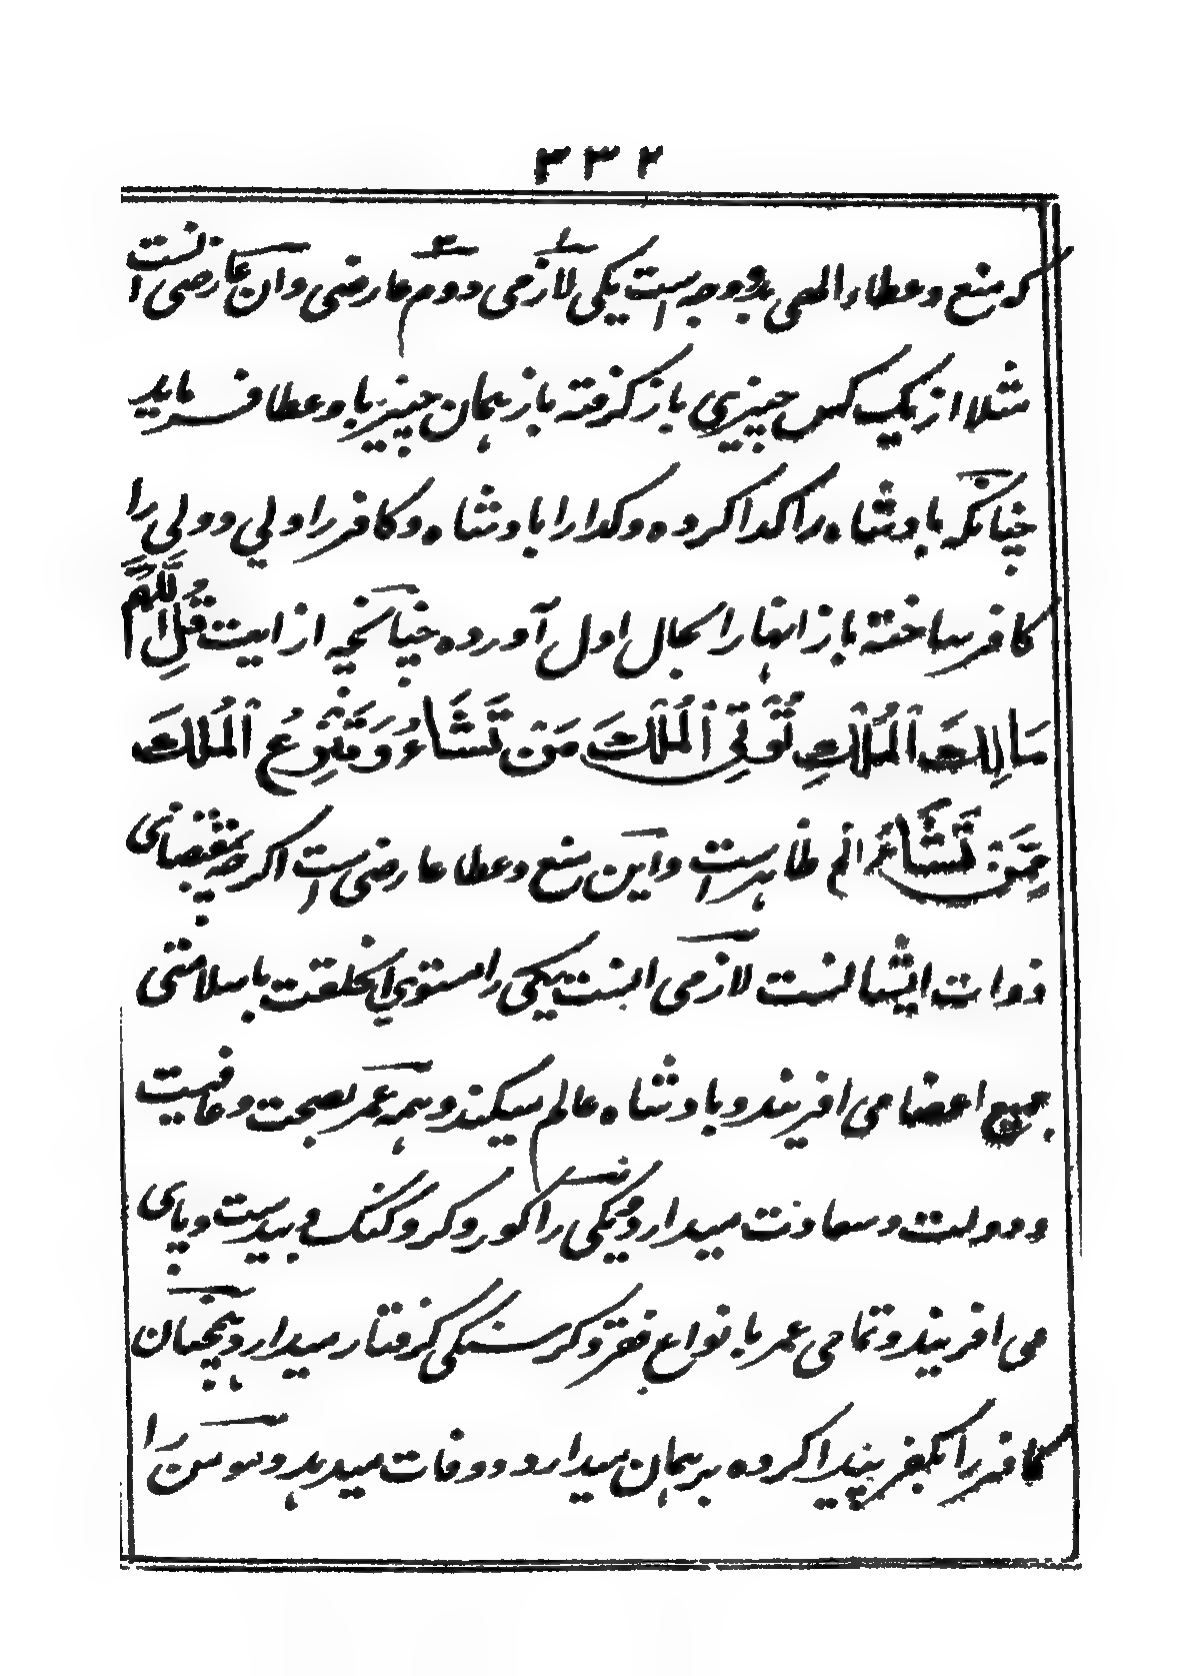 ۳۳۲
که منع و عطاء الهی بدو وجه است یکی لازمی دوم عارضی و آن عارضی آنست
مثلا از یک کس چیزی باز گرفته باز همان چیز باو عطا فرماید
چنانکه بادشاه را گدا کرده و گدا را بادشاه و کافر را ولی و ولی را
کافر ساخته باز اینها را بحال اول آورده چنانچه از ایت قُلِ اللّٰهُمَّ
مَالِكَ الْمُلْكِ تُؤْتِي الْمُلْكَ مَنْ تَشَاءُ وَتَنْزِعُ الْمُلْكَ
مِمَّنْ تَشَاءُ الخ ظاهر است و این منع و عطا عارضی است اگرچه بمقتضای
ذوات ایشانست لازمی اینست یکی را مستوی الخلقت باسلامتی
جمیع اعضا می افریند و بادشاه عالم میکند و همه عمر بصحت و عافیت
و دولت و سعادت میدارد و یکی را کور و کر و گنگ و بیدست و پای
می افریند و تمامی عمر بانواع فقر و گرسنگی گرفتار میدارد و همچنان
کافر را بکفر پیدا کرده بر همان میدارد و وفات میدهد و مومن را